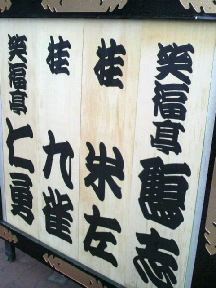 笑福亭 鶴志
桂 米左
桂 九雀
笑福亭 仁勇